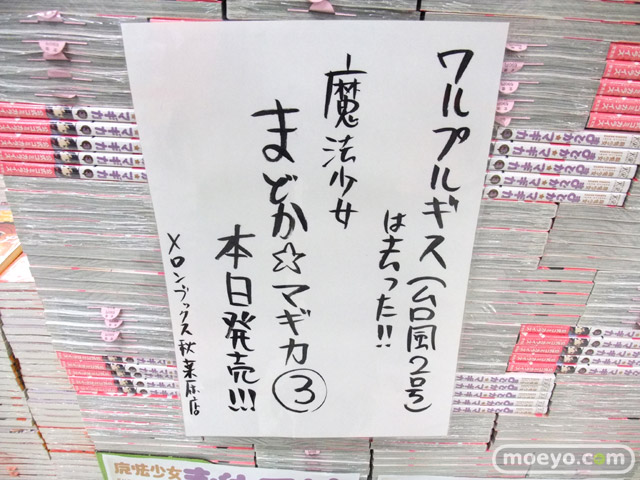 ワルプルギス(台風2号)
は去った!!
魔法少女
まどか☆マギカ③
本日発売!!!
メロンブックス秋葉原店
魔法少女
moeyo.com